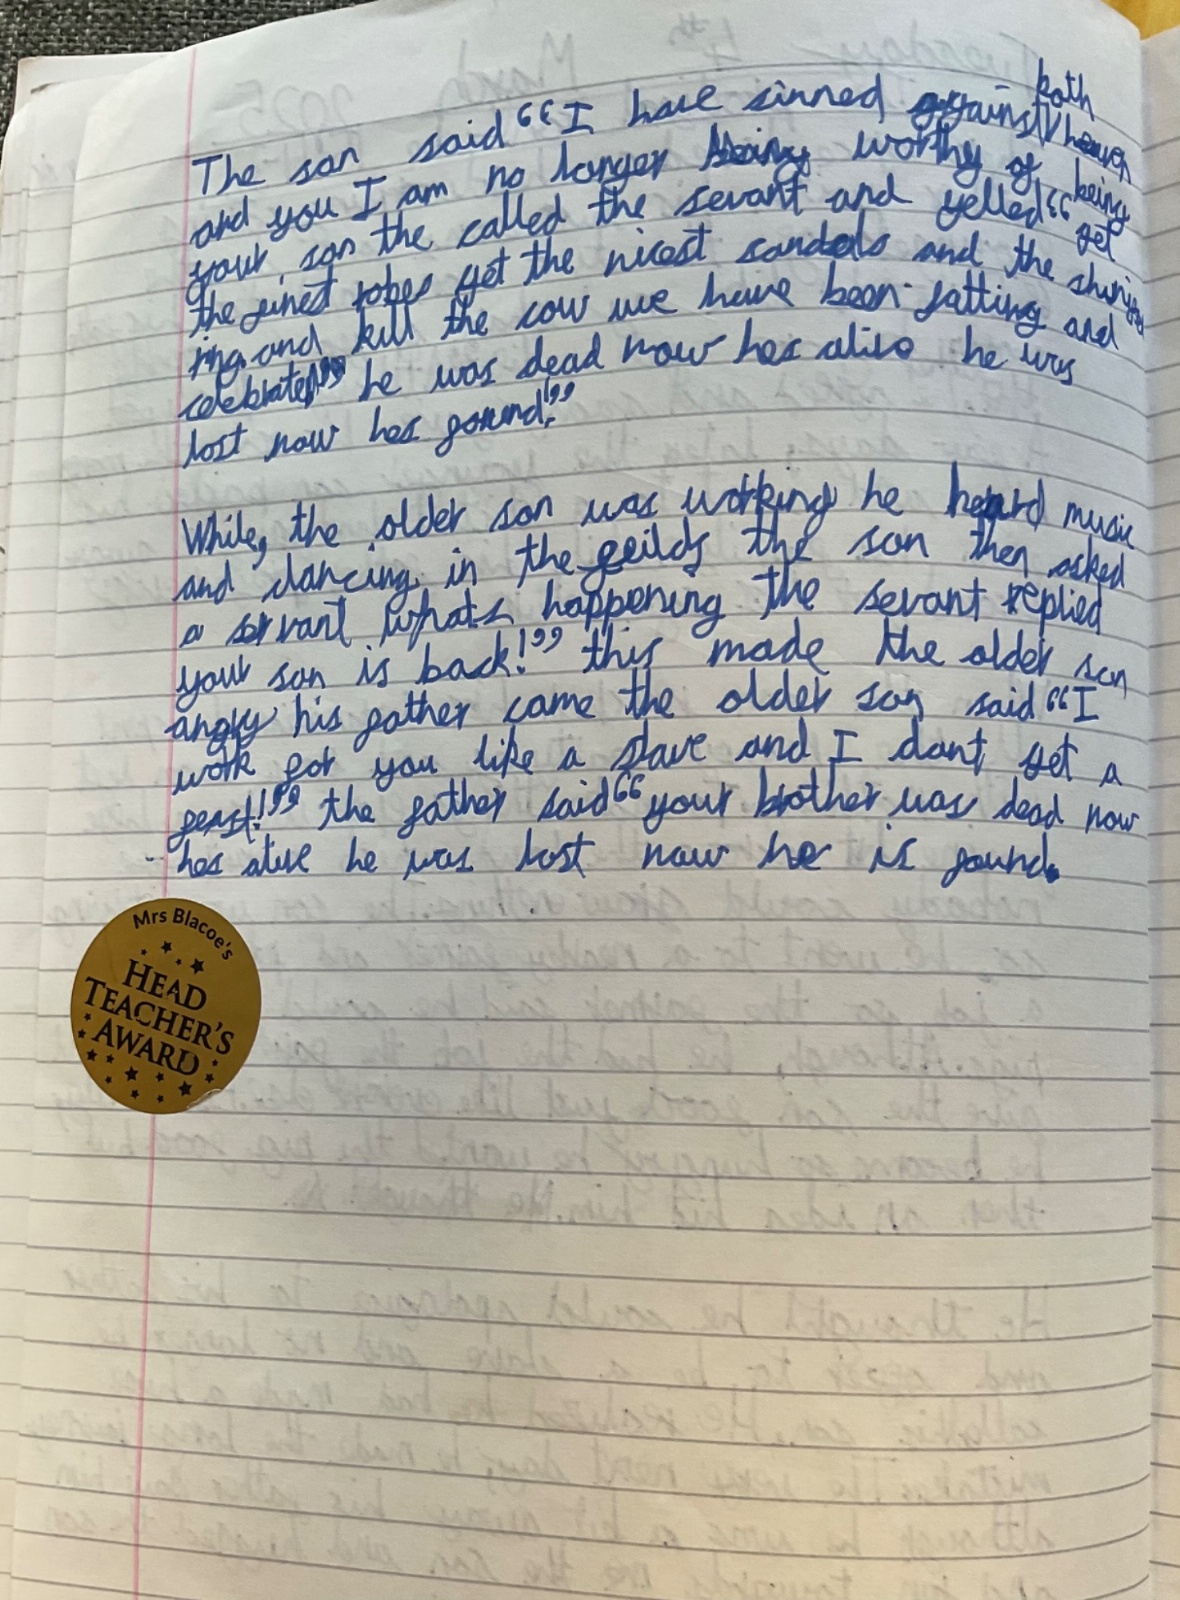 The son said “I have sinned against both heaven
and you I am no longer being worthy of being
your son the called the sevant and yelled “ get
the finest robes get the nicest sandals and the shinyest
ring and kill the cow we have been fatting and
celebrate!” he was dead now hes alive he was
lost now hes found!”
While, the older son was working he heard music
and dancing in the feilds the son then asked
a servant whats happening the sevant replied
your son is back!” this made the older son
angry his father came the older son said “I
work for you like a slave and I dont get a
feast!” the father said “ your brother was dead now
hes alive he was lost now he is found.
Mrs Blacoe's
HEAD
TEACHER'S
AWARD